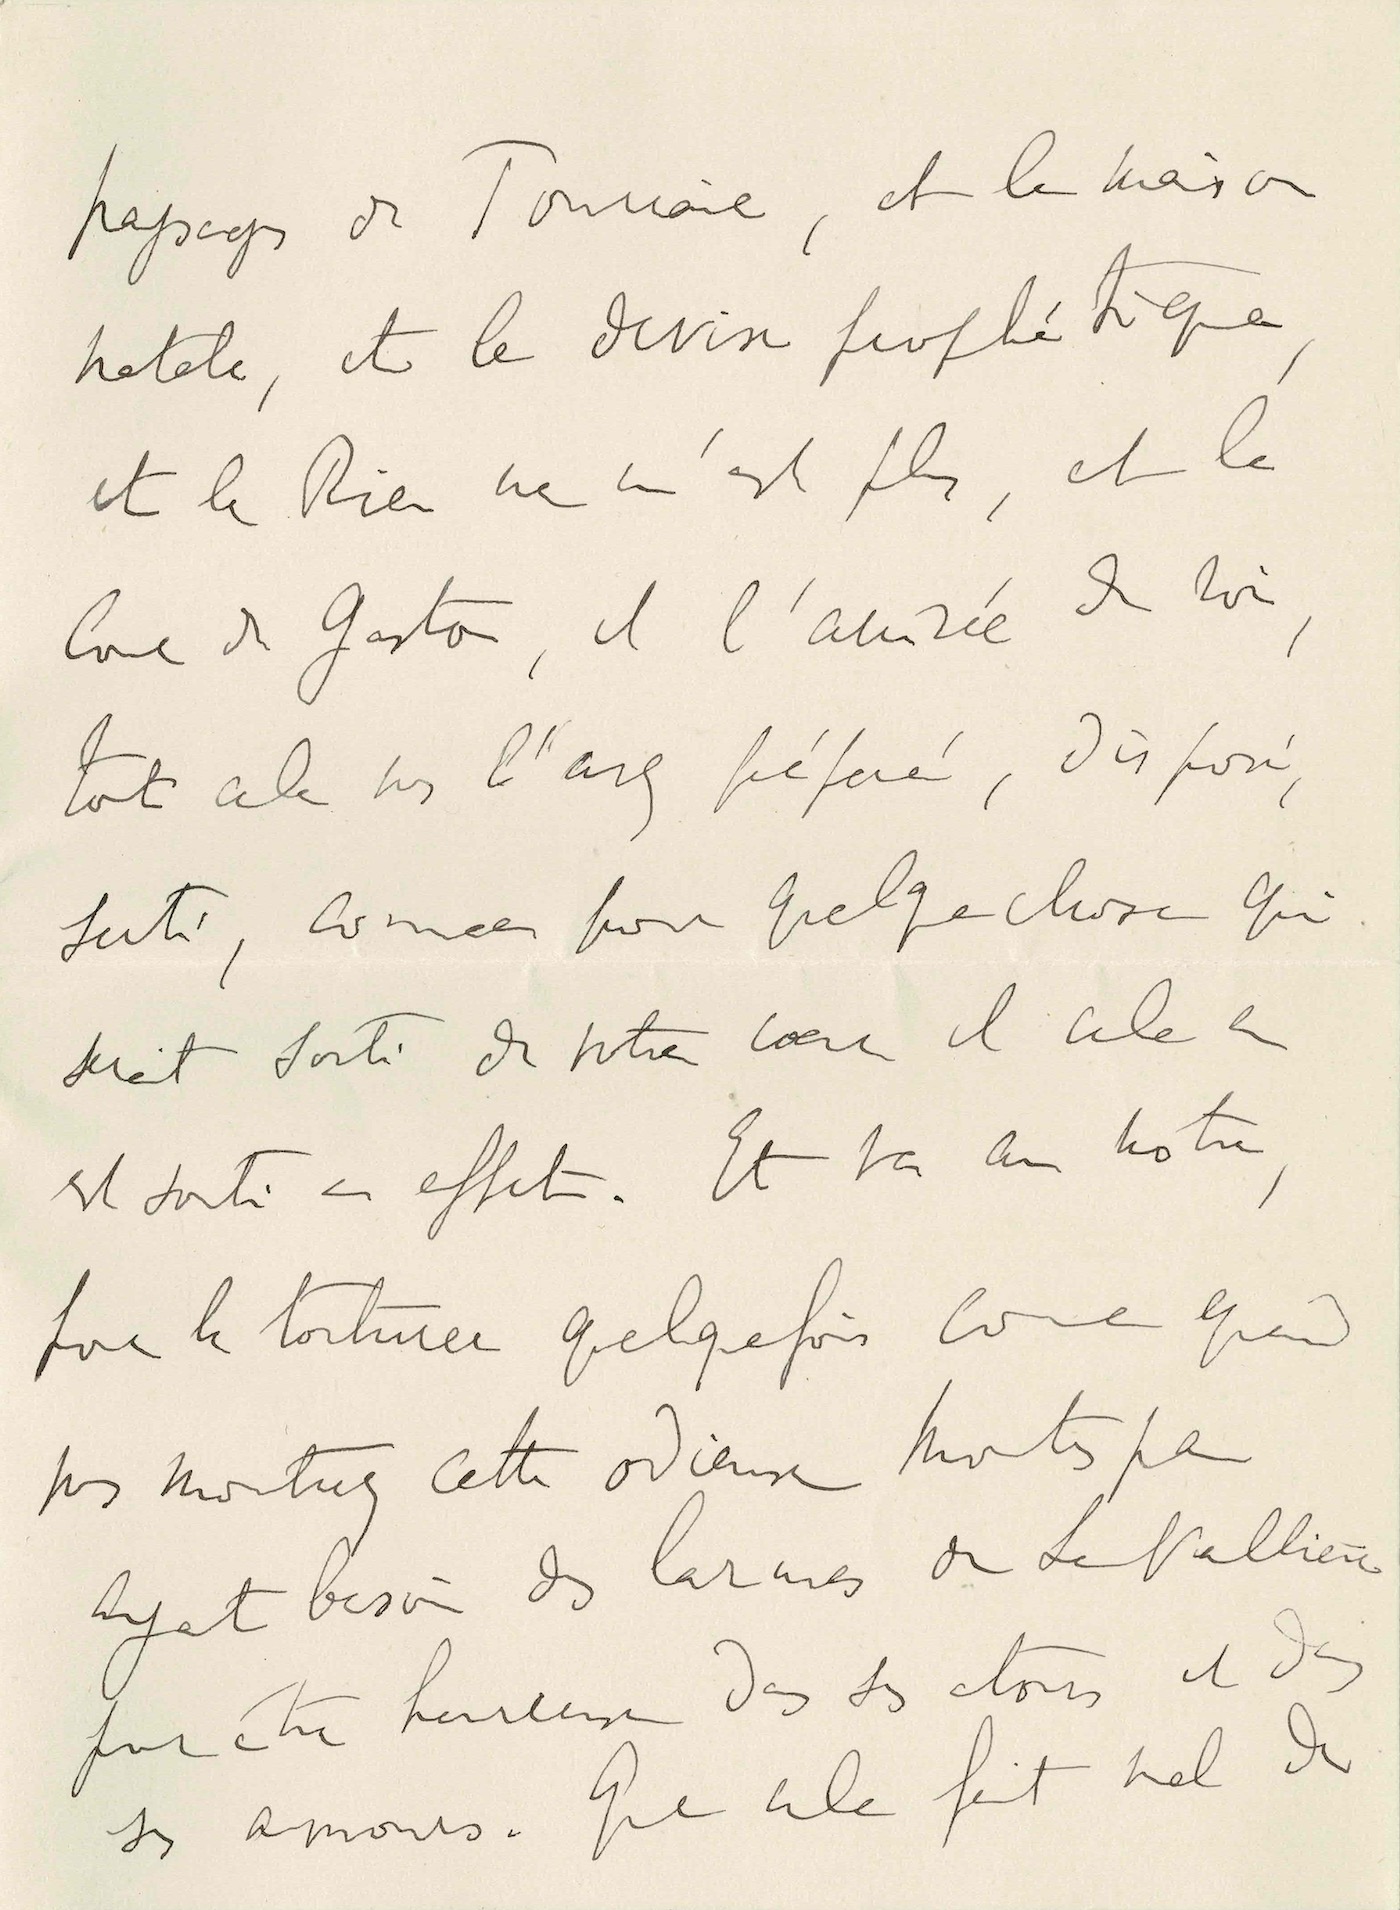 paysages de Touraine, et la maison
natale, et la devise prophétique,
et le Rien ne m'est plus, et la
Cour de Gaston, et l'arrivée du roi,
tout cela vous l'avez préféré, disposé,
serti, comme pour quelque chose qui
serait sorti de votre cœur et cela en
est sorti en effet. Et va au nôtre,
pour le torturer quelquefois comme quand
vous montrez cette odieuse Montespan
ayant besoin des larmes de La Vallière
pour être heureuse dans ses atours et dans
ses amours. Que cela fait mal de